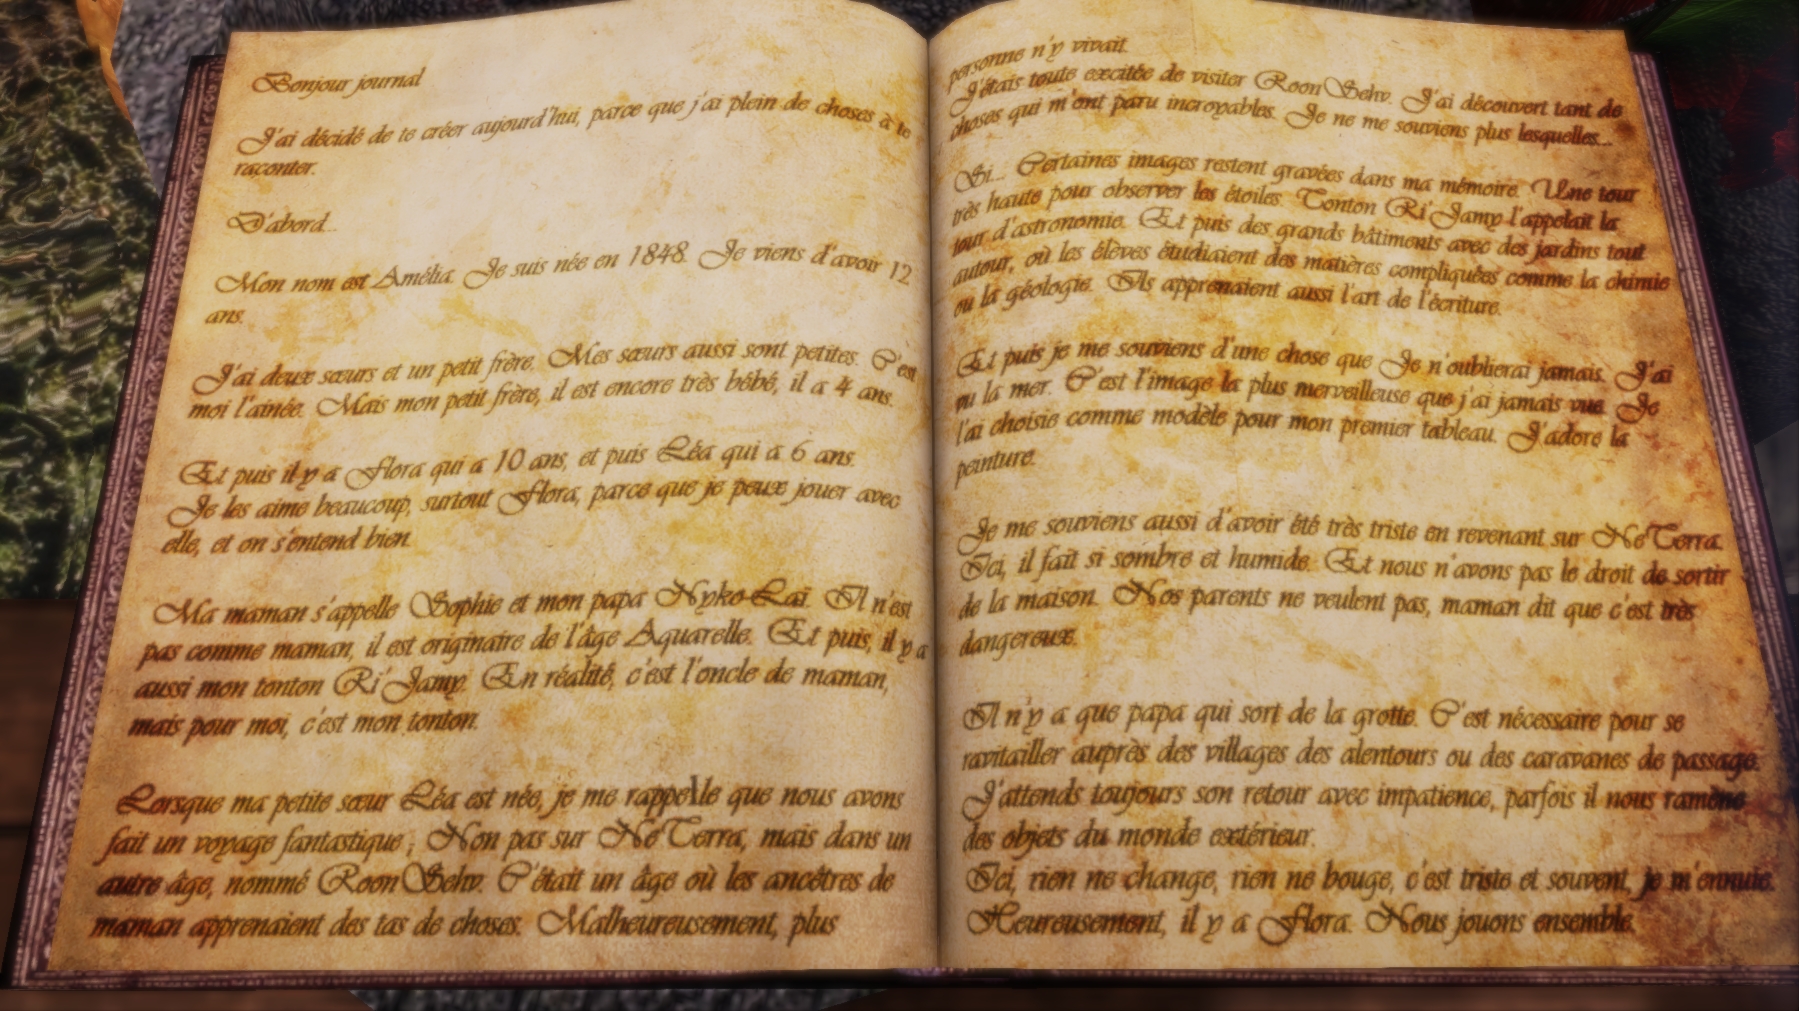 Bonjour journal
J'ai décidé de te créer aujourd'hui, parce que j'ai plein de choses à te
raconter.
D'abord...
Mon nom est Amélia. Je suis née en 1848. Je viens d'avoir 12
ans.
J'ai deux sœurs et un petit frère. Mes sœurs aussi sont petites. C'est
moi l'ainée. Mais mon petit frère, il est encore très bébé, il a 4 ans.
Et puis il y a Flora qui a 10 ans, et puis Léa qui a 6 ans.
Je les aime beaucoup, surtout Flora, parce que je peux jouer avec
elle, et on s'entend bien.
Ma maman s'appelle Sophie et mon papa Nyko-Laï. Il n'est
pas comme maman, il est originaire de l'âge Aquarelle. Et puis, il y a
aussi mon tonton Ri'Jamy. En réalité, c'est l'oncle de maman,
mais pour moi, c'est mon tonton.
Lorsque ma petite sœur Léa est née, je me rappelle que nous avons
fait un voyage fantastique ; Non pas sur NeTerra, mais dans un
autre âge, nommé RoonSehv. C'était un âge où les ancêtres de
maman apprenaient des tas de choses. Malheureusement, plus
personne n'y vivait.
J'étais toute excitée de visiter RoonSehv. J'ai découvert tant de
choses qui m'ont paru incroyables. Je ne me souviens plus lesquelles...
Si... Certaines images restent gravées dans ma mémoire. Une tour
très haute pour observer les étoiles. Tonton Ri'Jamy l'appelait la
tour d'astronomie. Et puis des grands bâtiments avec des jardins tout
autour, où les élèves étudiaient des matières compliquées comme la chimie
ou la géologie. Ils apprenaient aussi l'art de l'écriture.
Et puis je me souviens d'une chose que Je n'oublierai jamais. J'ai
vu la mer. C'est l'image la plus merveilleuse que j'ai jamais vue. Je
l'ai choisie comme modèle pour mon premier tableau. J'adore la
peinture.
Je me souviens aussi d'avoir été très triste en revenant sur NeTerra.
Ici, il fait si sombre et humide. Et nous n'avons pas le droit de sortir
de la maison. Nos parents ne veulent pas, maman dit que c'est très
dangereux.
Il n'y a que papa qui sort de la grotte. C'est nécessaire pour se
ravitailler auprès des villages des alentours ou des caravanes de passage.
J'attends toujours son retour avec impatience, parfois il nous ramène
des objets du monde extérieur.
Ici, rien ne change, rien ne bouge, c'est triste et souvent, je m'ennuie.
Heureusement, il y a Flora. Nous jouons ensemble.